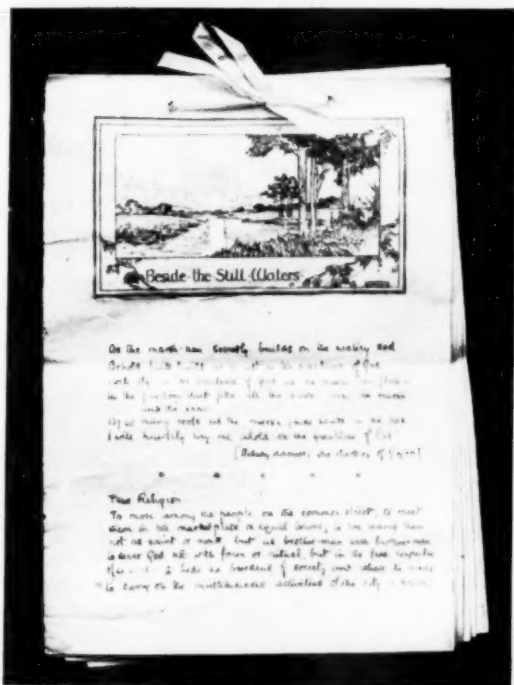 Beside the Still Waters
As the marsh-hen secretly builds on the watery sod
Behold I will build me a nest on the greatness of God
in the freedom that fills all the space 'twixt the marsh
and the skies
By so many roots as the marsh grass sends in the sod
I will heartily lay me ahold on the greatness of God
[Sidney Lanier:
True Religion
To move among the people on the common street; to meet
them in the marketplace on equal terms; to live among them
not as saint or monk, but as brother-man with brother-man
to serve God not with form or ritual, but in the free impulse
of a soul. To bear the burdens of society and
to carry on the multitudinous activities of the city